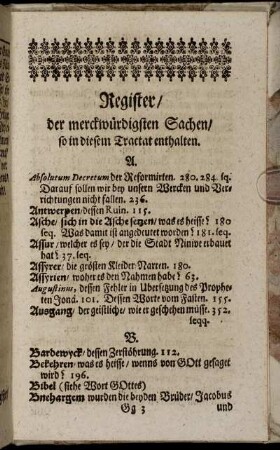 Register/
der merckwürdigsten Sachen/
so in diesem Tractat enthalten.
A.
Absolutum Decretum der Reformirten. 280. 284. sq.
Darauf sollen wir bey unsern Wercken und Ver-
richtungen nicht fallen. 236.
Antwerpen/ dessen Ruin. 115.
Asche/ sich in die Asche setzen/ was es heisse? 180
seq. Was damit ist angedeutet worden? 181. seq.
Assur/ welcher es sey/ der die Stadt Ninive erbauet
hat? 37. seq.
Assyrer/ die grösten Kleider Narren. 180.
Assyrien/ woher es den Nahmen habe? 63.
Augustinus, dessen Fehler in Ubersetzung des Prophe-
ten Jonä. 101. Dessen Worte vom Fasten. 155.
Ausgang/ der geistliche/ wie er geschehen müsse. 352.
seqq.
B.
Bardewyck/ dessen Zerstöhrung. 112.
Bekehren/ was es heisse/ wenns von GOtt gesaget
wird? 196.
Bibel (siehe Wort GOttes)
Bnehargem wurden die beyden Brüder/ Jacobus
Gg 3 und